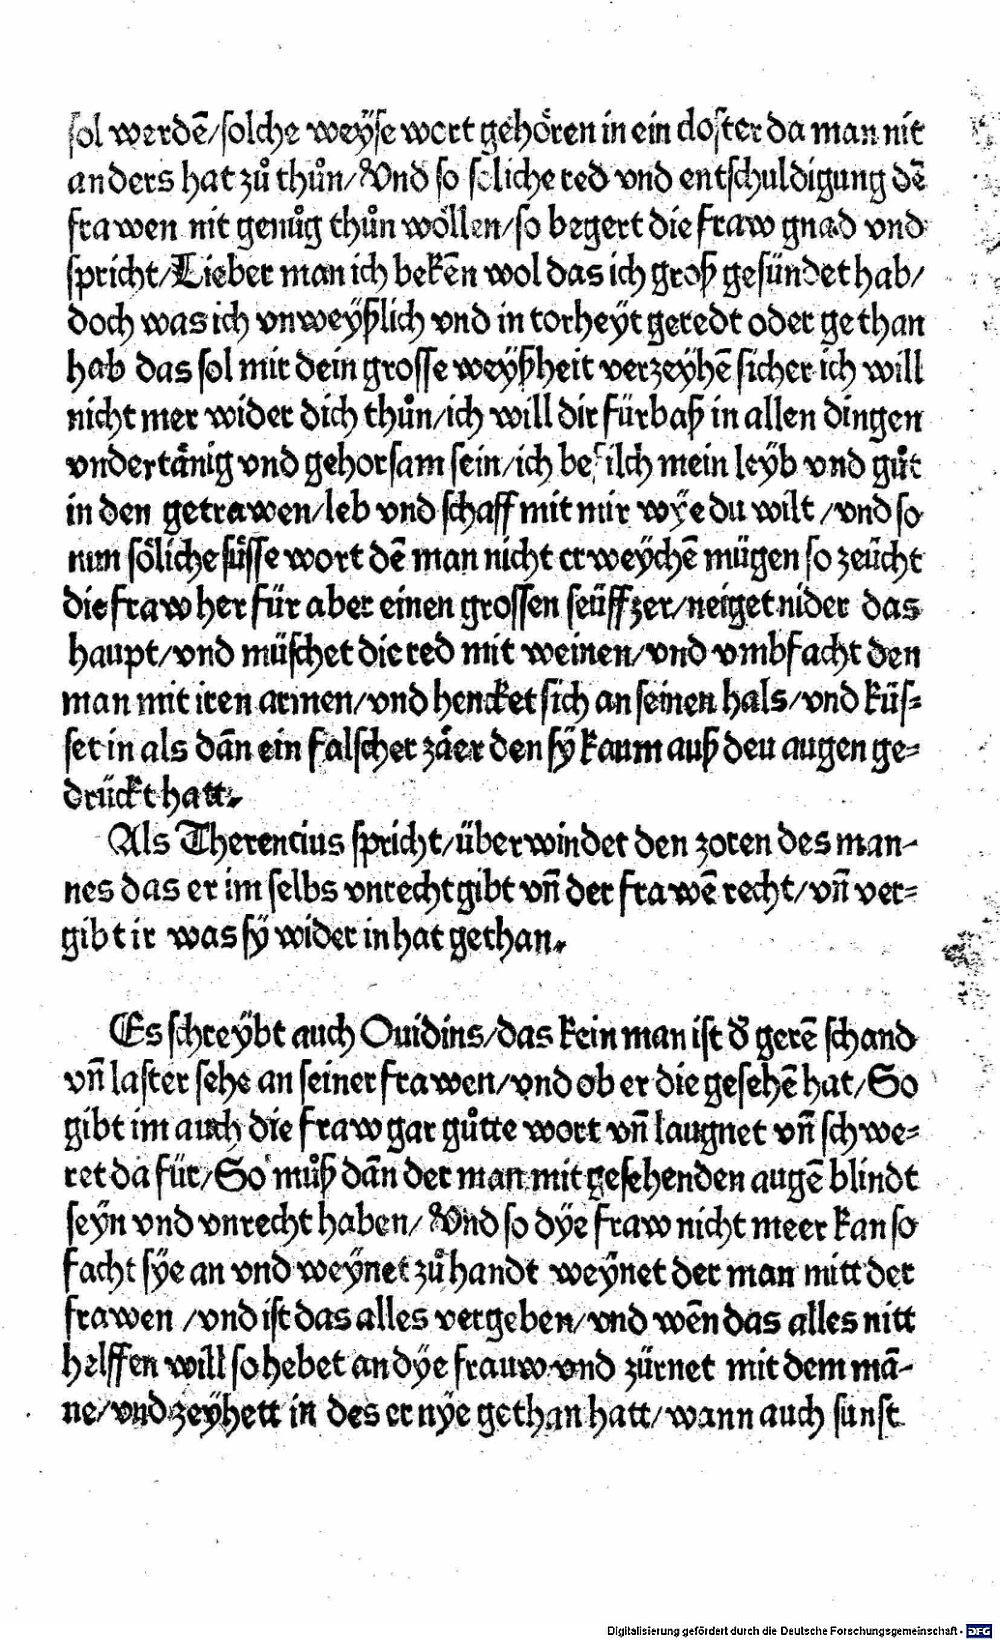 sol werdē/solche weÿse wort gehören in ein closter da man nit
anders hat zů thůn/Vnd so soliche red vnd entschuldigung dē
frawen nit genůg thůn wöllen/so begert die fraw gnad vnd
spricht/Lieber man ich bekēn wol das ich groß gesündet hab/
doch was ich vnweÿßlich vnd in torheÿt geredt oder gethan
hab das sol mir dein grosse weÿßheit verzeyhē sicher ich will
nicht mer wider dich thůn/ich will dir fürbaß in allen dingen
vndertänig vnd gehorsam sein/ich befilch mein leÿb vnd gůt
in den getrawen/leb vnd schaff mit mir wÿe du wilt/vnd so
nun söliche süsse wort dē man nicht erweÿchē mügen so zeücht
die fraw her für aber einen grossen seüffzer/neiget nider das
haupt/vnd müschet die red mit weinen/vnd vmbfacht den
man mit iren armen/vnd hencket sich an seinen hals/vnd küs=
set in als dān ein falscher zäer den sÿ kaum auß den augen ge=
drückt hatt.
Als Therencius spricht/überwindet den zoren des man-
nes das er im selbs vnrecht gibt vn̄ der frawē recht/vn̄ ver=
gibt ir was sÿ wider in hat gethan.
Es schreÿbt auch Ouidins/das kein man ist d' gerē schand
vn̄ laster sehe an seiner frawen/vnd ob er die gesehē hat/So
gibt im auch die fraw gar gůtte wort vn̄ laugnet vn̄ schwe=
ret da für/So můß dān der man mit gesehenden augē blindt
seÿn vnd vnrecht haben/Vnd so dÿe fraw nicht meer kan so
facht sÿe an vnd weÿnet zůhandt weÿnet der man mitt der
frawen/vnd ist das alles vergeben/vnd wēn das alles nitt
helffen will so hebet an dÿe frauw vnd zürnet mit dem mā-
ne/vnd zeÿhett in des er nÿe gethan hatt/wann auch sunst
Digitalisierung gefördert durch die Deutsche Forschungsgemeinschaft - DFG